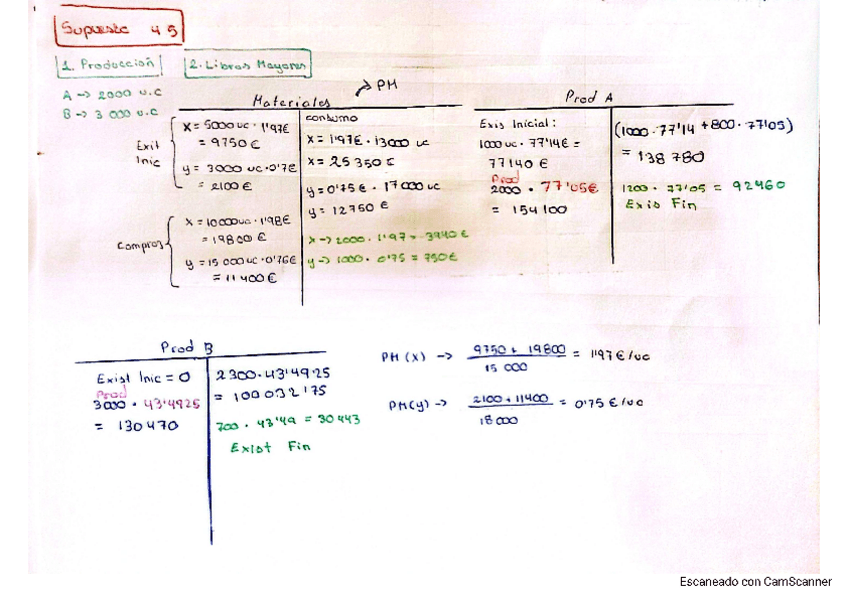 Supuesto 45
1. Producción
2. Libros Mayores
A → 2000 u.c
B → 3 000 u.c
Materiales → PM
Exit Inic
x = 5000uc · 1'97€
= 9750 €
y = 3000 uc · 0'7€
= 2100 €
Compras
x = 10000uc · 1'98€
= 19800 €
y = 15 000uc · 0'76€
= 11 400 €
consumo
x = 1'97€ · 13000 uc
x = 25 350 €
y = 0'75€ · 17000 uc
y = 12750 €
x → 2000 · 1'97 = 3940 €
y → 1000 · 0'75 = 750€
Prod A
Exis Inicial:
1000uc · 77'14€ =
77140 €
Prod
2000 · 77'05€
= 154 100
(1000·77'14 + 800·77'05)
= 138 780
1200 · 77'05 = 92460
Exis Fin
Prod B
Exist Inic = 0
Prod
3000 · 43'4925
= 130 470
2300·43'4925
= 100 032'175
700 · 43'49 = 30 443
Exist Fin
PM (x) → 9750 + 19800 / 15 000 = 1'97 €/uc
PM(y) → 2100 + 11400 / 18 000 = 0'75 €/uc
Escaneado con CamScanner